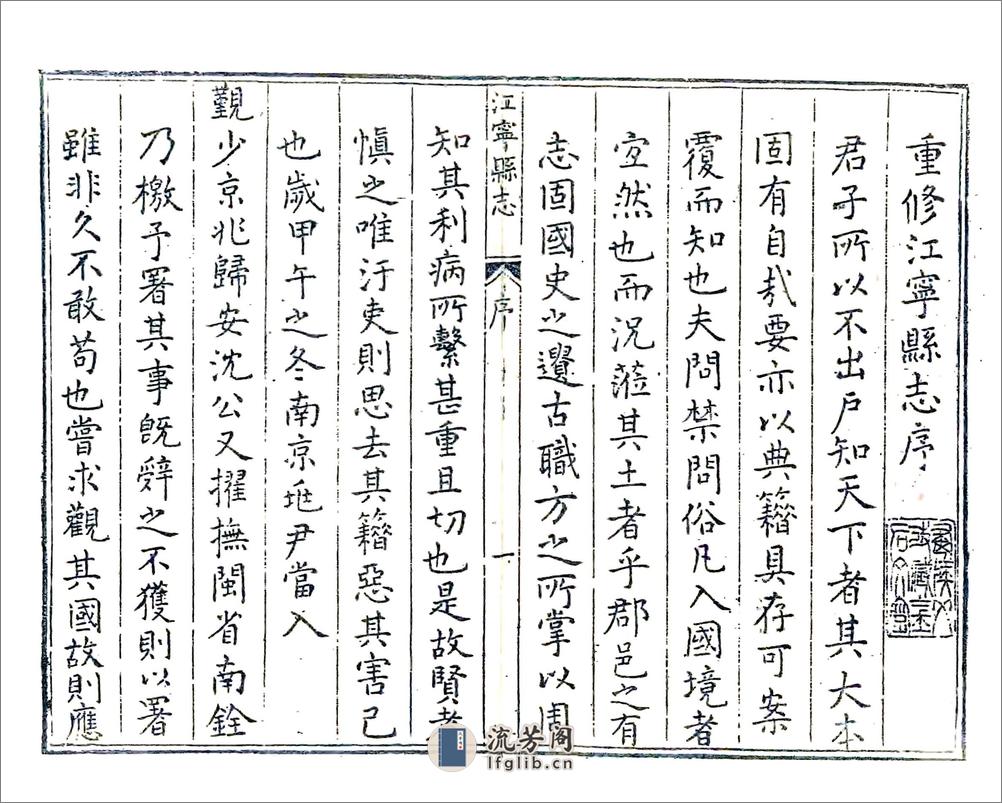 重修江寧縣志序
君子所以不出戶知天下者其大本
固有自哉要亦以典籍具存可案
覆而知也夫問禁問俗凡入國境者
宜然也而況蒞其土者乎郡邑之有
志固國史之邊古職方之所掌以周
江寧縣志
序
一
知其利病所繫甚重且切也是故賢者
慎之唯汙吏則思去其籍惡其害己
也歲甲午之冬南京亞尹當入
覲少京兆歸安沈公又擢撫閩省南銓
乃檄予署其事既辭之不獲則以署
雖非久不敢苟也嘗求觀其國故則應
流芳阁
lfglib.cn